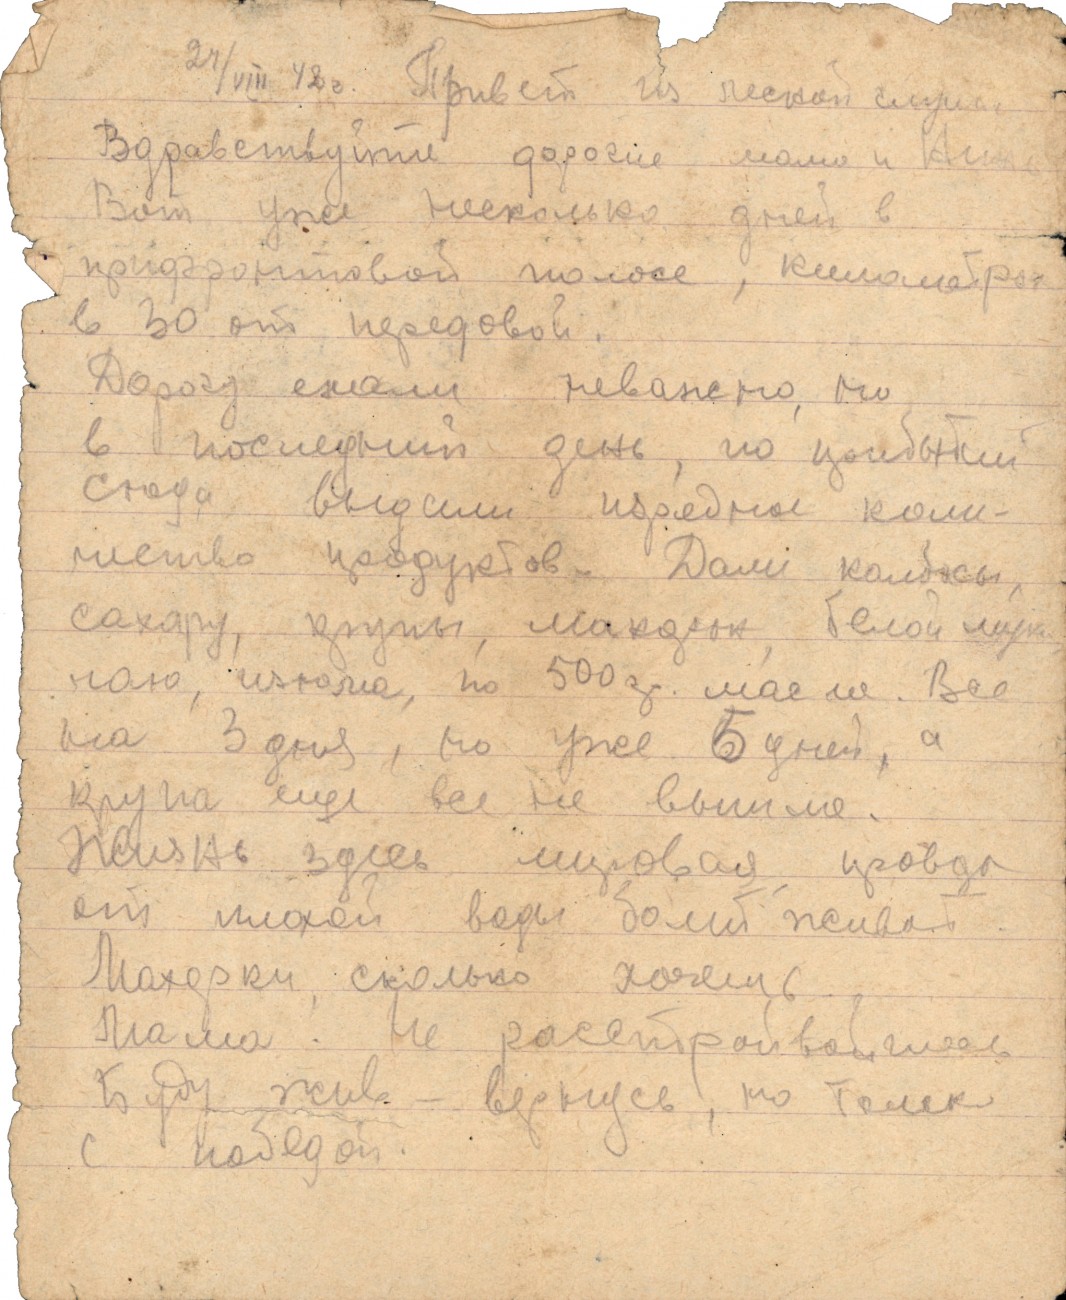 24/VIII 42 г. Привет из лесной глуши
Здравствуйте дорогие мама и
Вот уже несколько дней в
прифронтовой полосе, километрах
в 30 от передовой.
Дорогу ехали неважно, но
в последний день, по прибытии
сюда выдали изрядное коли-
чество продуктов. Дали колбасы,
сахару, крупы, махорки, белой муки
чаю, изюма, по 500 гр. масла. Все
на 3 дня, но уже 5 дней, а
крупа еще все не вышла.
Жизнь здесь мировая, правда
от плохой воды болит живот.
Махорки, сколько хочешь
Мама! Не расстраивайтесь
Буду жив – вернусь, но только
с победой.